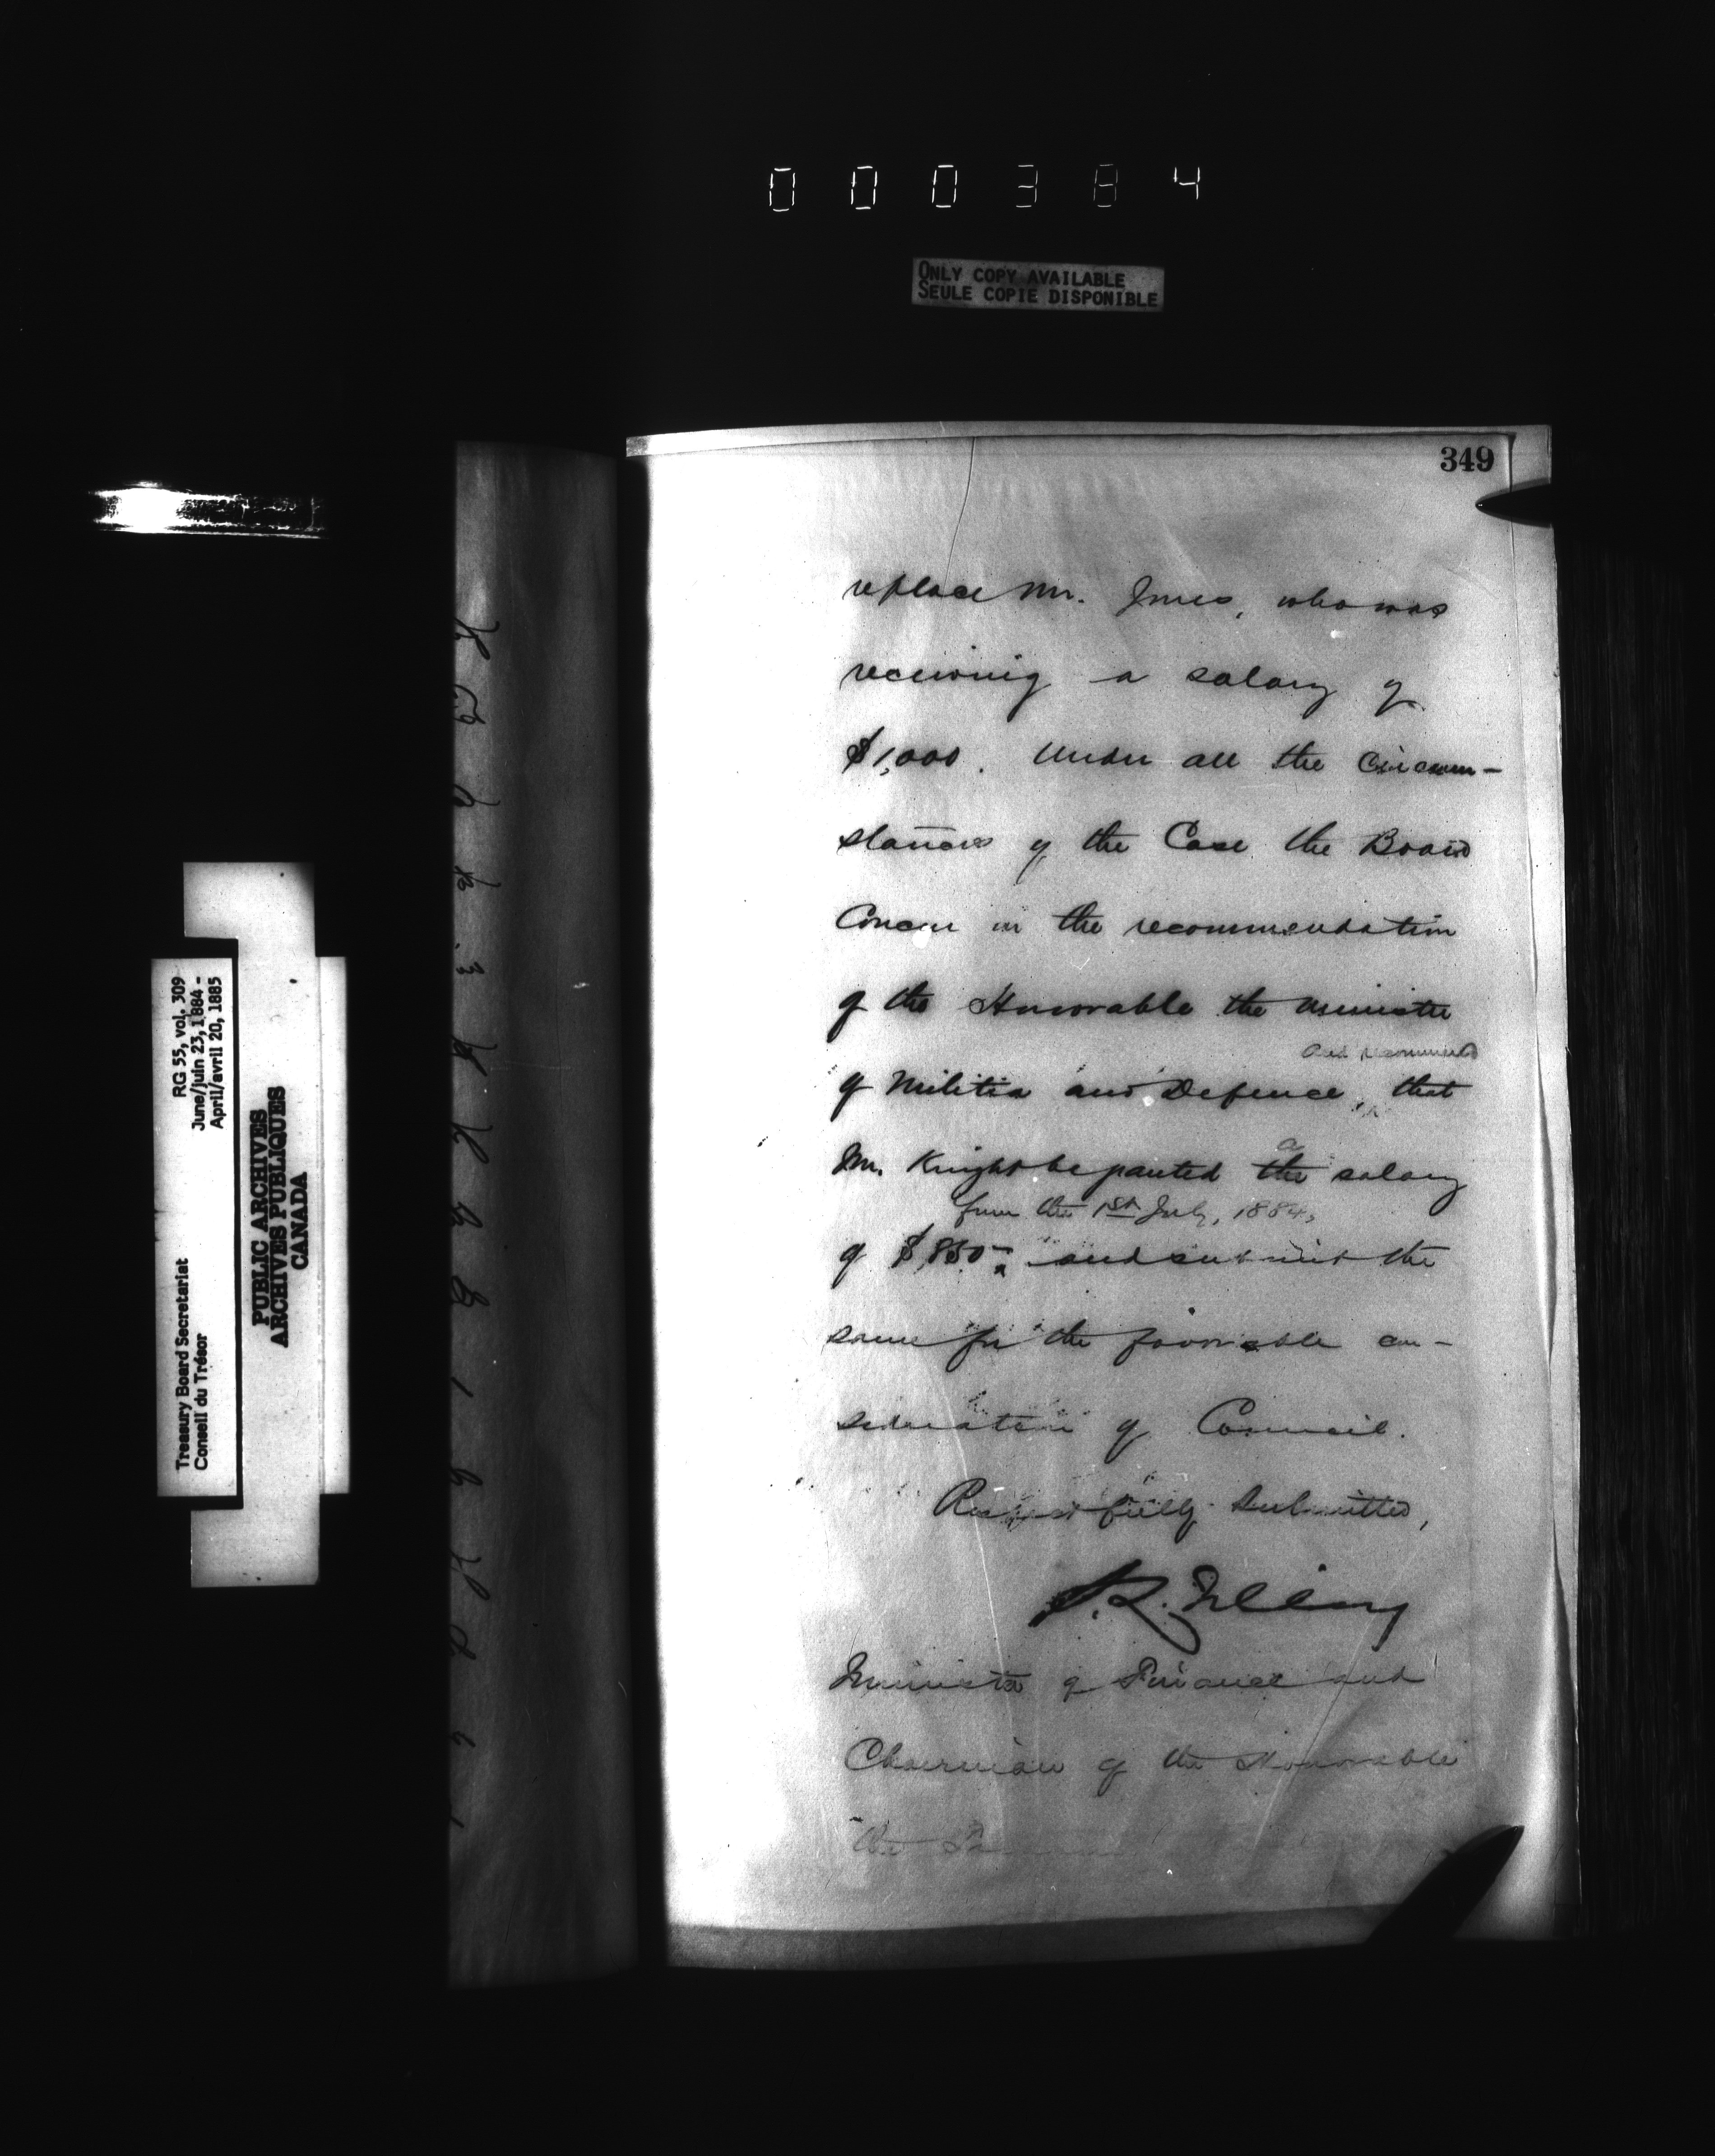 000384
ONLY COPY AVAILABLE
SEULE COPIE DISPONIBLE
349
replace Mr. Innes, who was
receiving a salary of
$1,000. Under all the Circum-
stances of the Case the Board
Concur in the recommendation
of the Honorable the Minister
and recommend
of Militia and Defence, that
a
Mr. Knight be granted the salary
from the 1st July, 1884,
of $850 - and submit the
same for the favorable con-
sideration of Council.
Respectfully submitted,
S.L. Tilley
Minister of Finance and
Chairman of the Honorable
the
RG 55, vol. 309
June/juin 23, 1884 -
April/avril 20, 1885
Treasury Board Secretariat
Conseil du Trésor
PUBLIC ARCHIVES
ARCHIVES PUBLIQUES
CANADA